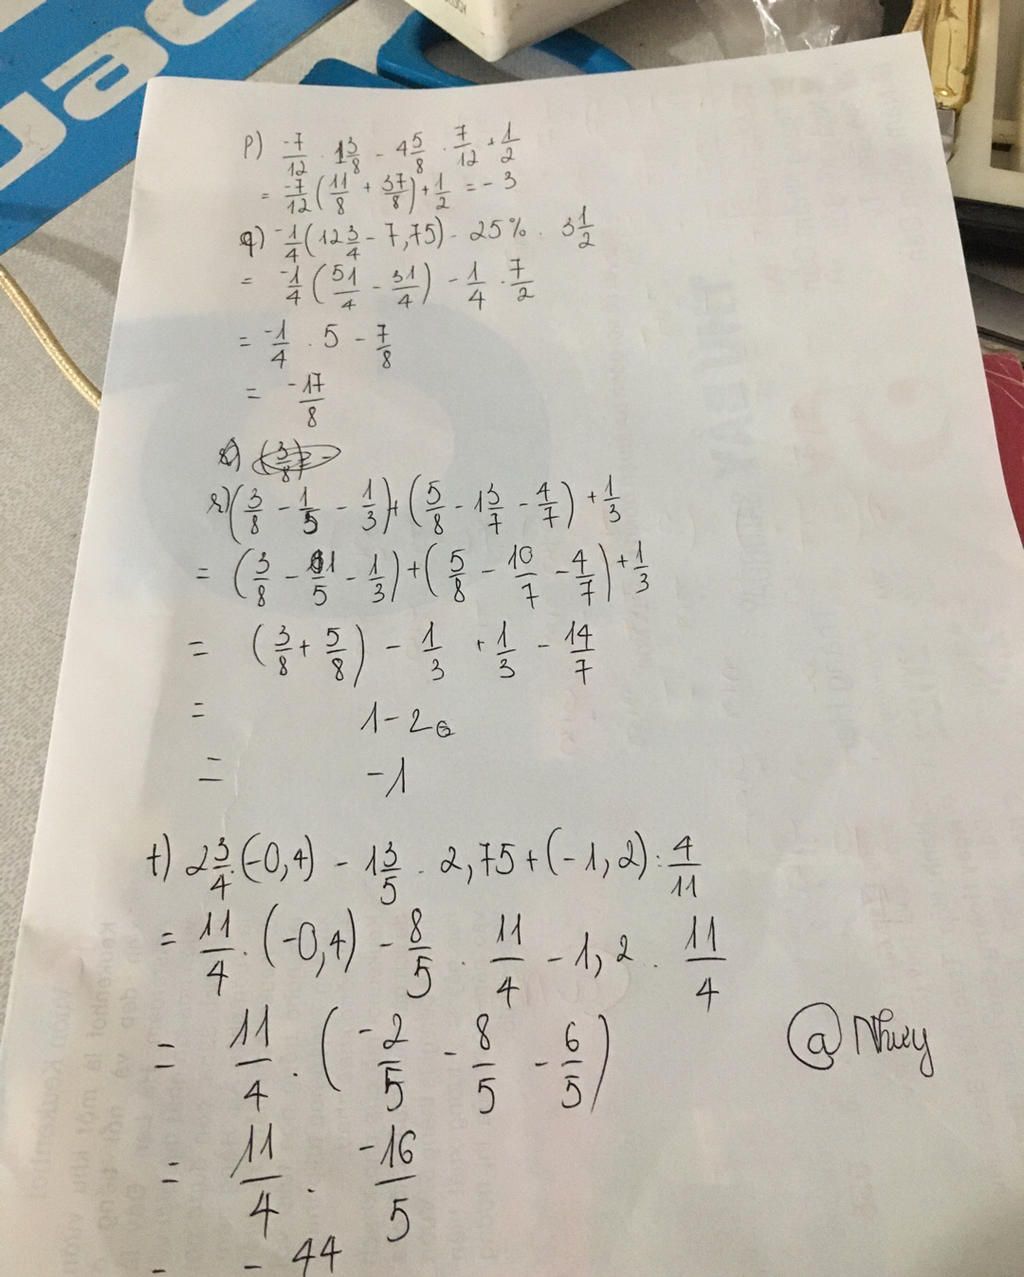 p) -7/12 . 1 3/8 - 4 5/8 . 7/12 + 1/2
= -7/12 (11/8 + 37/8) + 1/2 = -3
q) -1/4 (12 3/4 - 7,75) - 25% . 3 1/2
= -1/4 (51/4 - 31/4) - 1/4 . 7/2
= -1/4 . 5 - 7/8
= -17/8
r) (3/8 - 1/5 - 1/3) + (5/8 - 1 3/7 - 4/7) + 1/3
= (3/8 - 1/5 - 1/3) + (5/8 - 10/7 - 4/7) + 1/3
= (3/8 + 5/8) - 1/3 + 1/3 - 14/7
= 1 - 2
= -1
t) 2 3/4 . (-0,4) - 1 3/5 . 2,75 + (-1,2) : 4/11
= 11/4 . (-0,4) - 8/5 . 11/4 - 1,2 . 11/4
= 11/4 . (-2/5 - 8/5 - 6/5)
@ Nhuy
= 11/4 . -16/5
- 44